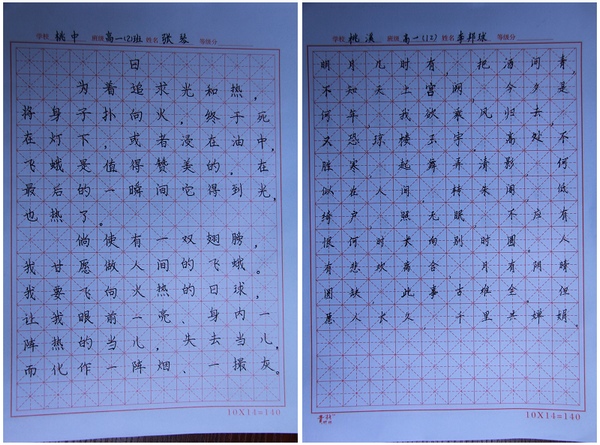 学校 桃中 班级 高一(2)班 姓名 张琴 等级分
日
为着追求光和热，
将身子扑向火，终于死
在灯下，或者浸在油中，
飞蛾是值得赞美的。在
最后的一瞬间它得到光，
也热了。
倘使有一双翅膀，
我甘愿做人间的飞蛾。
我要飞向火热的日球，
让我眼前一亮、身内一
阵热的当儿，失去当儿，
而化作一阵烟、一撮灰。
10X14=140
学校 桃溪 班级 姓名 李邦球 等级分
明月几时有，把酒问青。
不知天上宫阙，今夕是
何年，我欲乘风归去，
又恐琼楼玉宇，高处不
胜寒，起舞弄清影，何
似在人间，转朱阁，低
绮户，照无眠，不应有
恨何时大向别时圆，人
有悲欢离合，月有阴晴
圆缺，此事古难全。但
愿人大久，千里共婵娟。
10X14=140